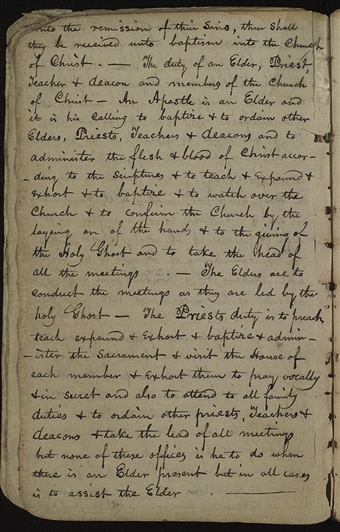 unto the remission of their sins, then shall
they be received unto baptism into the Church
of Christ. — The duty of an Elder, Priest
Teacher & deacon and members of the Church
of Christ — An Apostle is an Elder and
it is his calling to baptize & to ordain other
Elders, Priests, Teachers & deacons and to
administer the flesh & blood of Christ accor-
-ding to the scriptures & to teach & expound &
exhort & to baptize & to watch over the
Church & to confirm the Church by the
laying on of the hands & to the giving of
the Holy Ghost and to take the head of
all the meetings. — The Elders are to
conduct the meetings as they are led by the
holy Ghost — The Priests duty is to preach
teach expound & exhort & baptize & admin-
-ister the Sacrament & visit the House of
each member & exhort them to pray vocally
& in secret and also to attend to all family
duties & to ordain other priests, Teachers &
deacons & take the lead of all meetings
but none of these offices is he to do when
there is an Elder present but in all cases
is to assist the Elder. —